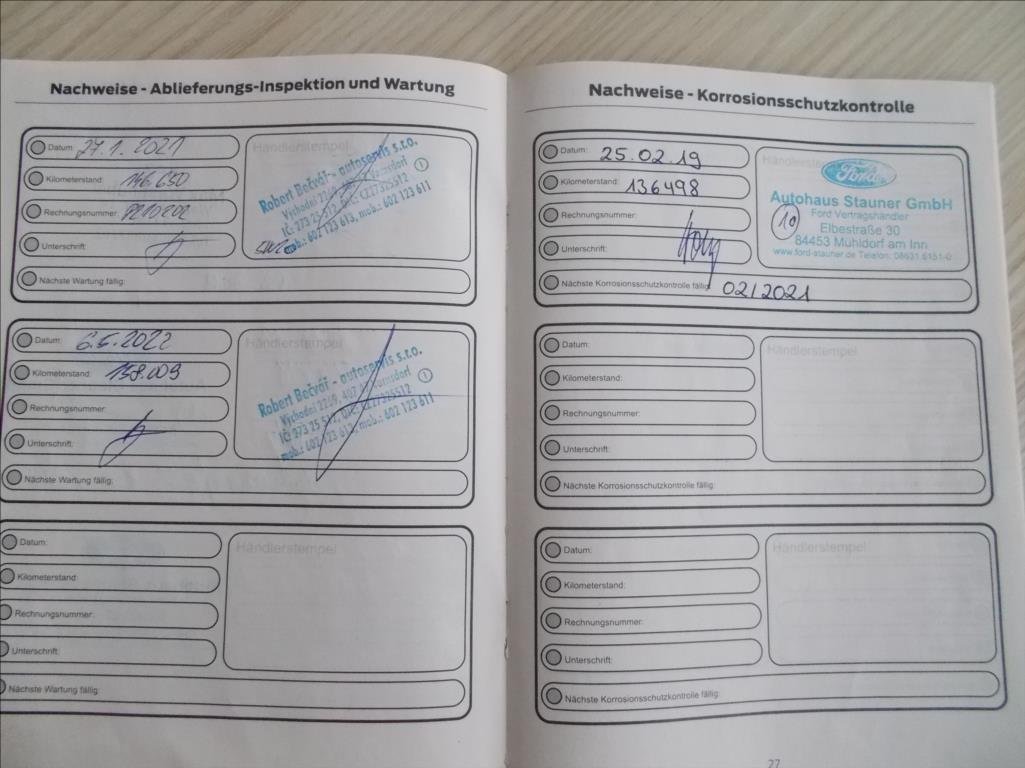 Nachweise - Ablieferungs-Inspektion und Wartung
Datum: 27.1.2021
Kilometerstand: 146.650
Rechnungsnummer:
Unterschrift:
Nächste Wartung fällig:
Händlerstempel
Robert Bečvář - autoservis s.r.o.
Východní 2269,
IČ: 273 25 512, DIČ: CZ27325512 1
mob.: 602 123 613, mob.: 602 123 611
Datum: 6.5.2022
Kilometerstand: 158.009
Rechnungsnummer:
Unterschrift:
Nächste Wartung fällig:
Händlerstempel
Robert Bečvář - autoservis s.r.o.
Východní 2269, 407 47 Varnsdorf
IČ: 273 25 512, DIČ: CZ27325512 1
mob.: 602 123 613, mob.: 602 123 611
Datum:
Kilometerstand:
Rechnungsnummer:
Unterschrift:
Nächste Wartung fällig:
Händlerstempel
Nachweise - Korrosionsschutzkontrolle
Datum: 25.02.19
Kilometerstand: 136498
Rechnungsnummer:
Unterschrift:
Nächste Korrosionsschutzkontrolle fällig: 02/2021
Händlerstempel
Ford
Autohaus Stauner GmbH
10 Ford Vertragshändler
Elbestraße 30
84453 Mühldorf am Inn
www.ford-stauner.de Telefon: 08631 6151-0
Datum:
Kilometerstand:
Rechnungsnummer:
Unterschrift:
Nächste Korrosionsschutzkontrolle fällig:
Händlerstempel
Datum:
Kilometerstand:
Rechnungsnummer:
Unterschrift:
Nächste Korrosionsschutzkontrolle fällig:
Händlerstempel
27